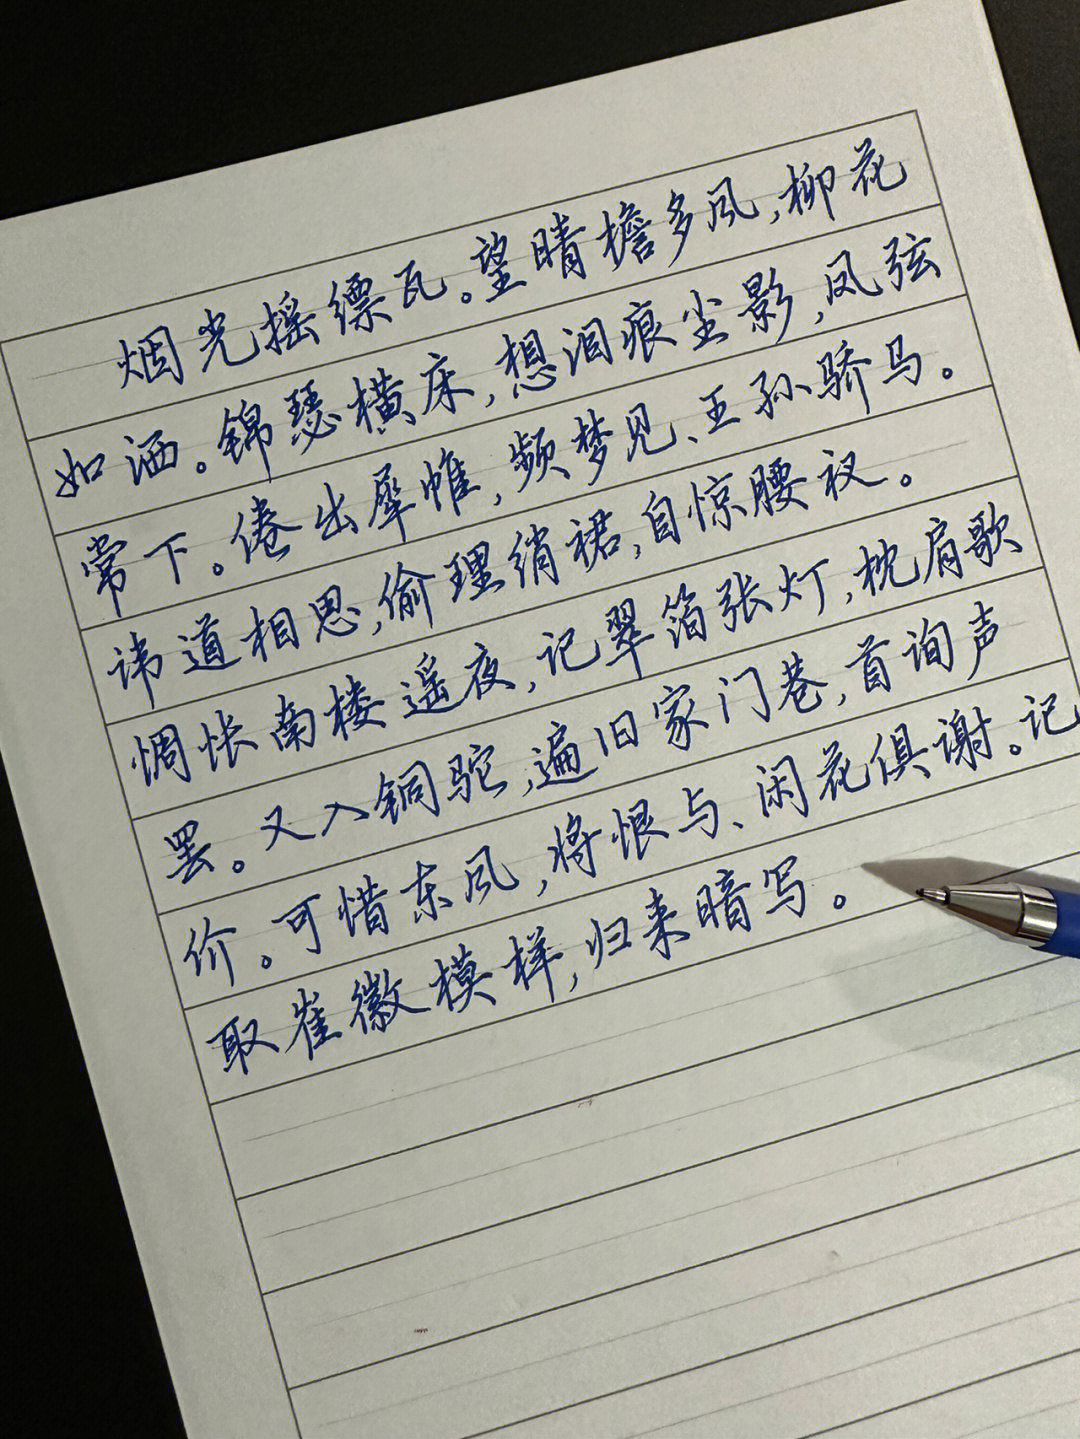 烟光摇缥瓦。望晴檐多风,柳花
如洒。锦瑟横床,想泪痕尘影,凤弦
常下。倦出犀帷,频梦见、王孙骄马。
讳道相思,偷理绡裙,自惊腰衩。
惆怅南楼遥夜,记翠箔张灯,枕肩歌
罢。又入铜驼,遍旧家门巷,首询声
价。可惜东风,将恨与、闲花俱谢。记
取崔徽模样,归来暗写。